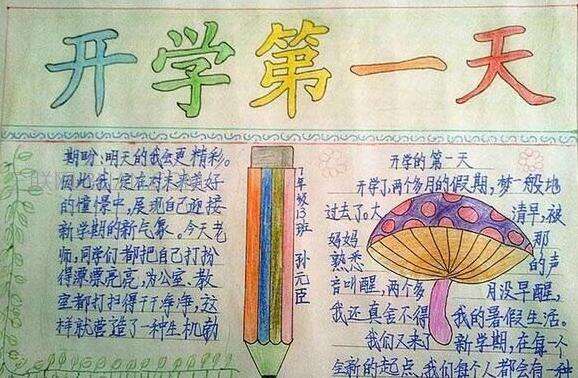 开学第一天
期盼:明天的我会更精彩。
因此我一定在对未来美好
的憧憬中,展现自己迎接
新学期的新气象。今天老
师,同学们都把自己打扮
得漂漂亮亮,为公室、教
室都打扫得干干净净,这
样就营造了一种生机勃
7年级13班 孙元臣
开学的第一天
开学了,两个多月的假期,梦一般地
过去了。大清早,被
妈妈那
熟悉的声
音叫醒,两个多月没早醒,
我还真舍不得我的暑假生活。
我们又来了新学期,在每一个
全新的起点,我们每个人都会有一种